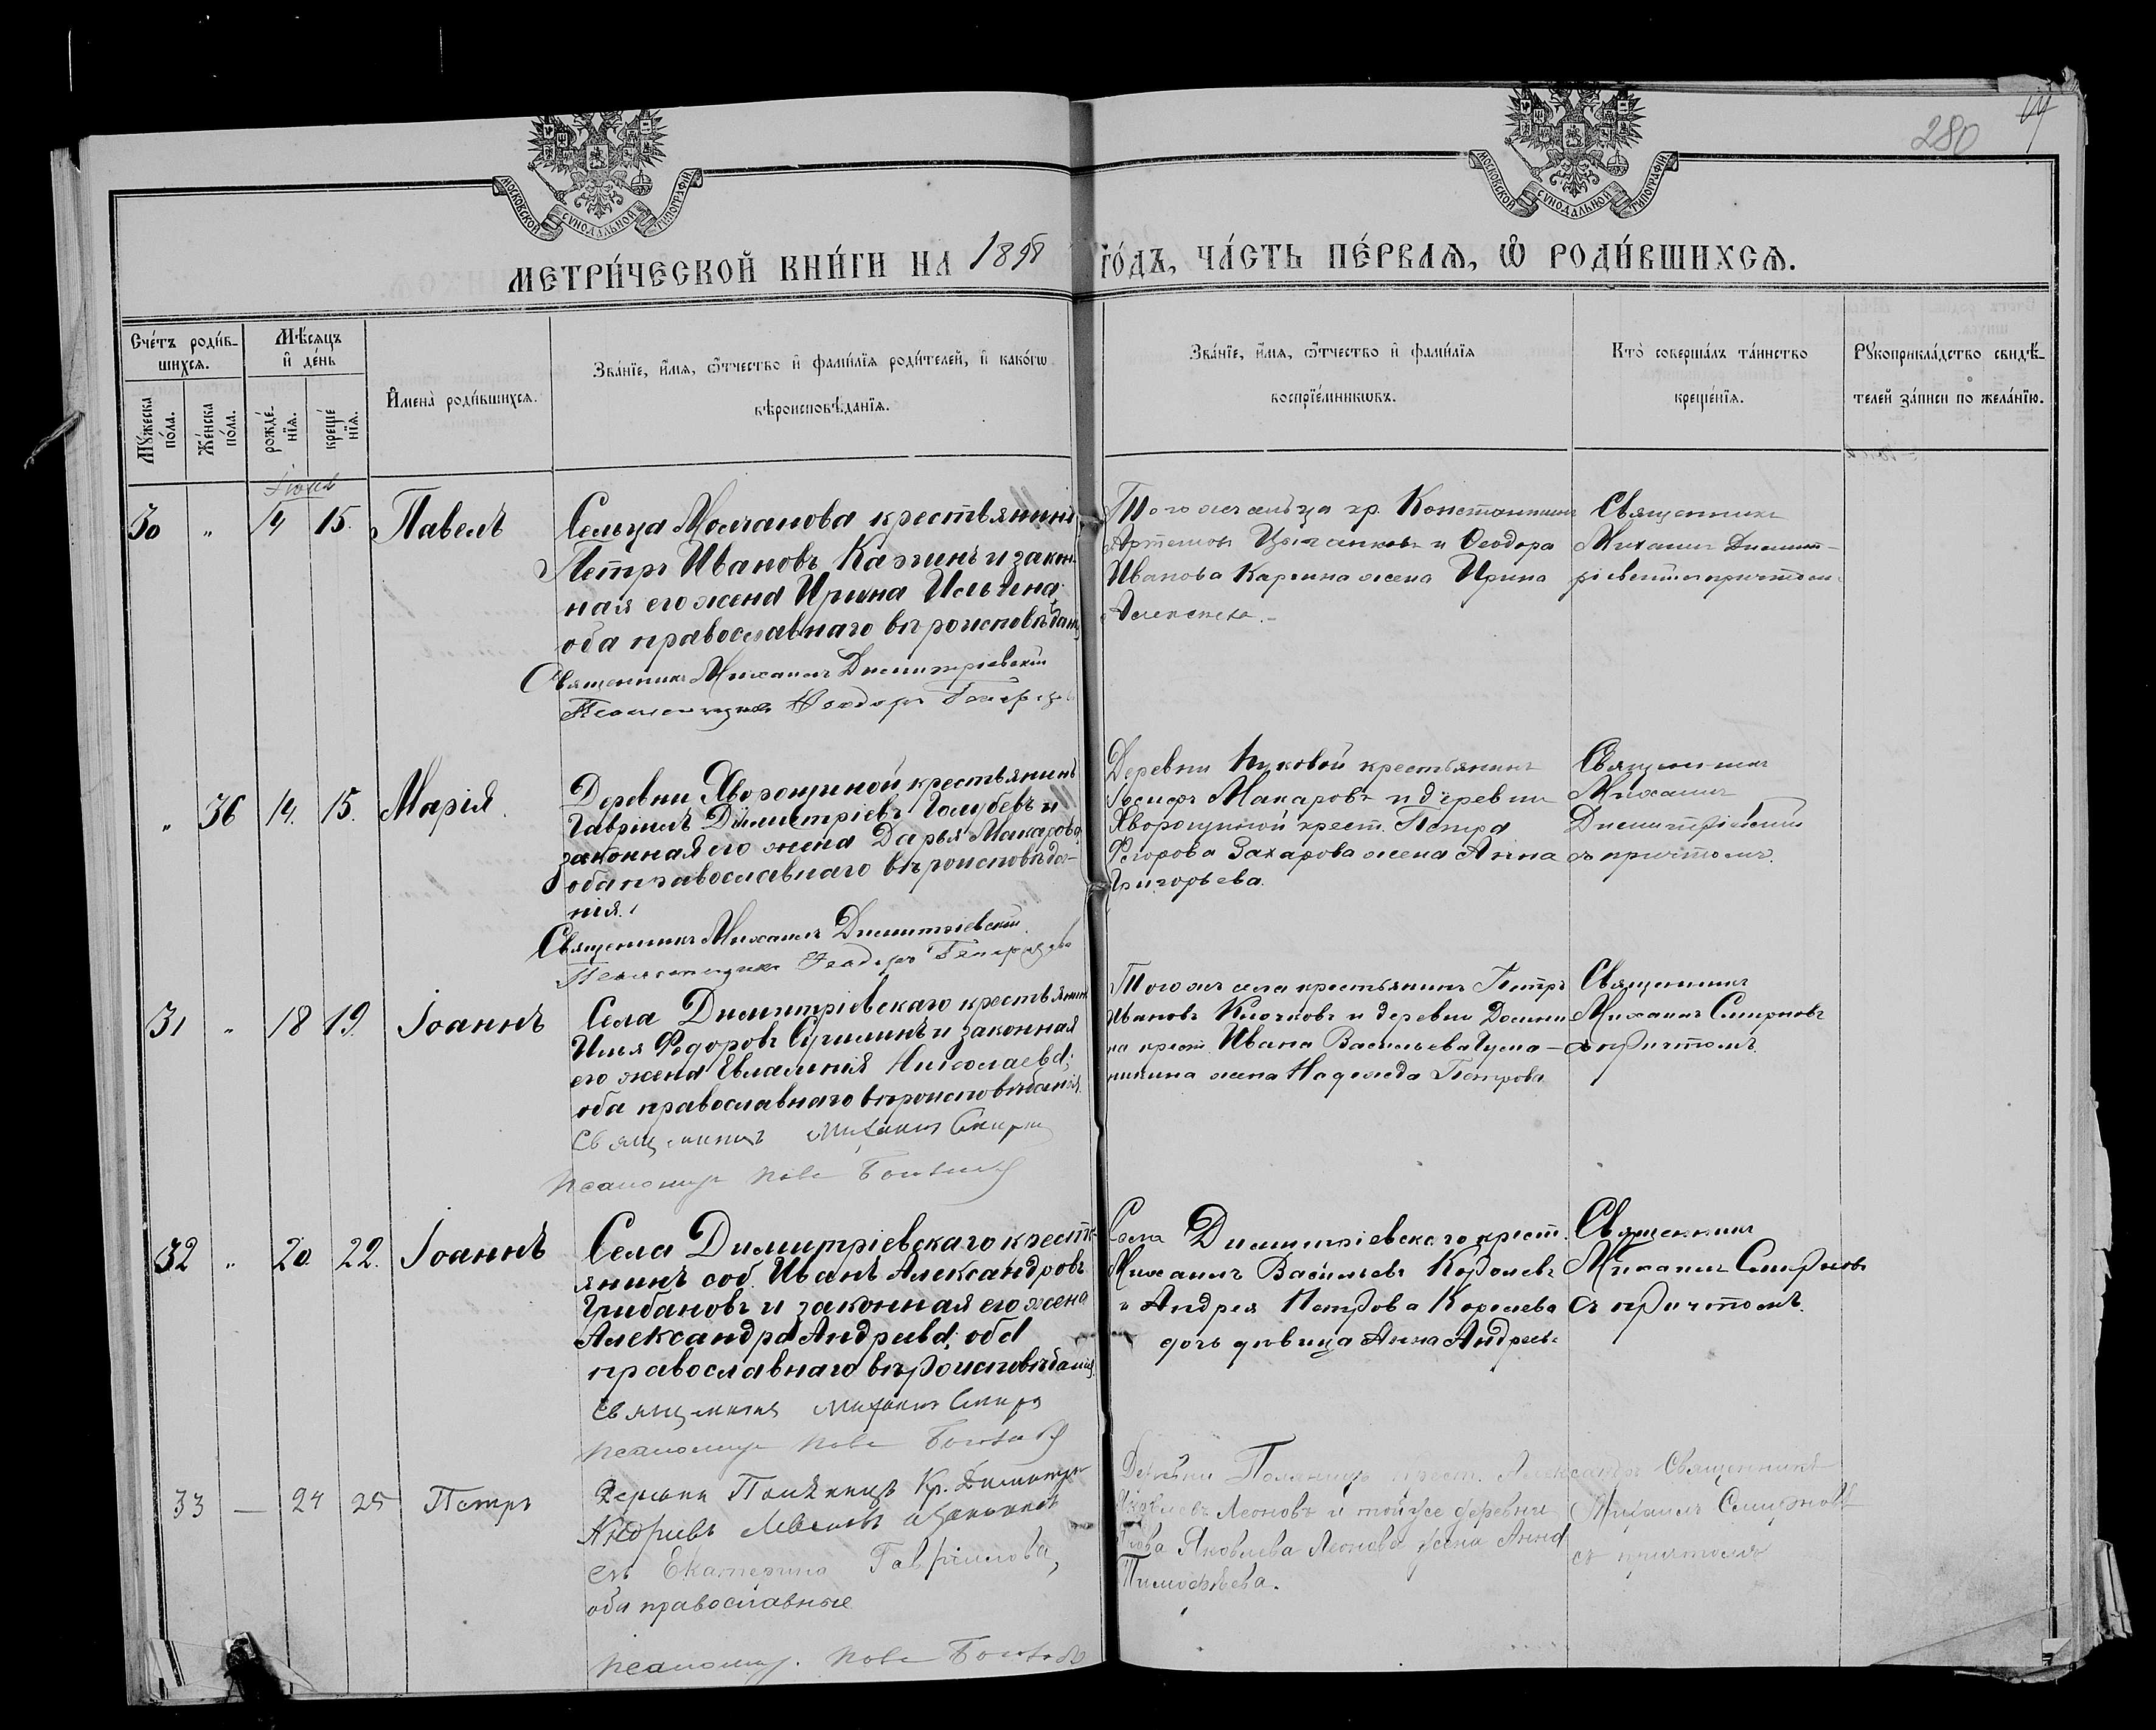 280
МОСКОВСКОЙ СУНОДАЛЬНОЙ ТИПОГРАФІИ
МОСКОВСКОЙ СУНОДАЛЬНОЙ ТИПОГРАФІИ
МЕТРИ́ЧЕСКОЙ КНИ́ГИ НА 1898 ГО́ДЪ, ЧА́СТЬ ПЕ́РВАѦ, Ѡ РОДИ́ВШИХСѦ.
Сче́тъ роди́в-
шихсѧ.
Мѣ́сѧцъ
и҆ де́нь
Мꙋ́жеска
по́ла.
Же́нска
по́ла.
рожде́-
нїѧ.
креще́
нїѧ.
И҆мена̀ роди́вшихсѧ.
Зва́нїе, и҆́мѧ, ѻ҆́тчество и҆ фами́лїѧ роди́телей, и҆ како́гѡ
вѣроисповѣ́данїѧ.
Зва́нїе, и҆́мѧ, ѻ҆́тчество и҆ фами́лїѧ
воспрїе́мникѡвъ.
Кто̀ соверша́лъ та́инство
креще́нїѧ.
Рꙋкоприкла́дство свидѣ́-
телей за́писи по жела́нїю.
30 " 14 15. Павелъ
Сельца Молчанова крестьянинъ
Петръ Ивановъ Каргинъ и закон-
ная его жена Ирина Ильина
оба православнаго вѣроисповѣданія
Священникъ Михаилъ Димитріевскій
Псаломщикъ Ѳеодоръ
Того же сельца кр. Константинъ
Артемовъ и Ѳеодора
Иванова Каргина жена Ирина
Священникъ
Михаилъ Димит-
ріевскій съ причтомъ
" 36 14. 15. Марія.
Деревни Хворощиной крестьянинъ
Гавріилъ Димитріевъ Голубевъ и
законная его жена Дарья Макарова
оба православнаго вѣроисповѣда-
нія.
Священникъ Михаилъ Димитріевскій.
Псаломщикъ Ѳеодоръ
Деревни крестьянинъ
Іосифъ Макаровъ и деревни
Хворощиной крест. Петра
Ѳедорова Захарова жена Анна
Григорьева.
Священникъ
Михаилъ
Димитріевскій
съ причтомъ.
31 " 18 19. Іоаннъ
Села Димитріевскаго крестьянинъ
Илья Ѳедоровъ и законная
его жена Евлампія Николаева;
оба православнаго вѣроисповѣданія.
Священникъ Михаилъ Смирн
Того же села крестьянинъ Петръ
Ивановъ Клочковъ и деревни
на крест. Ивана Васильева
жена Надежда Петрова
Священникъ
Михаилъ Смирновъ
съ причтомъ.
32 " 20. 22. Іоаннъ
Села Димитріевскаго крестъ-
янинъ соб. Иванъ Александровъ
Грибановъ и законная его жена
Александра Андреева; оба
православнаго вѣроисповѣданія.
Священникъ Михаилъ Смирн
Села Димитріевскаго крест.
Михаилъ Васильевъ Королевъ
и Андрея Петрова Королева
дочь дѣвица Анна Андреев-
Священникъ
Михаилъ Смирновъ
съ причтомъ.
33 — 24 25 Петръ
Деревни Кр. Димитрій
Андреевъ и законная
его Екатерина Гавріилова,
оба православные
Деревни крест. Александръ
Яковлевъ Леоновъ и той же деревни
Яковлева Леонова жена Анна
Тимоѳѣева.
Священникъ
Михаилъ Смирновъ
съ причтомъ